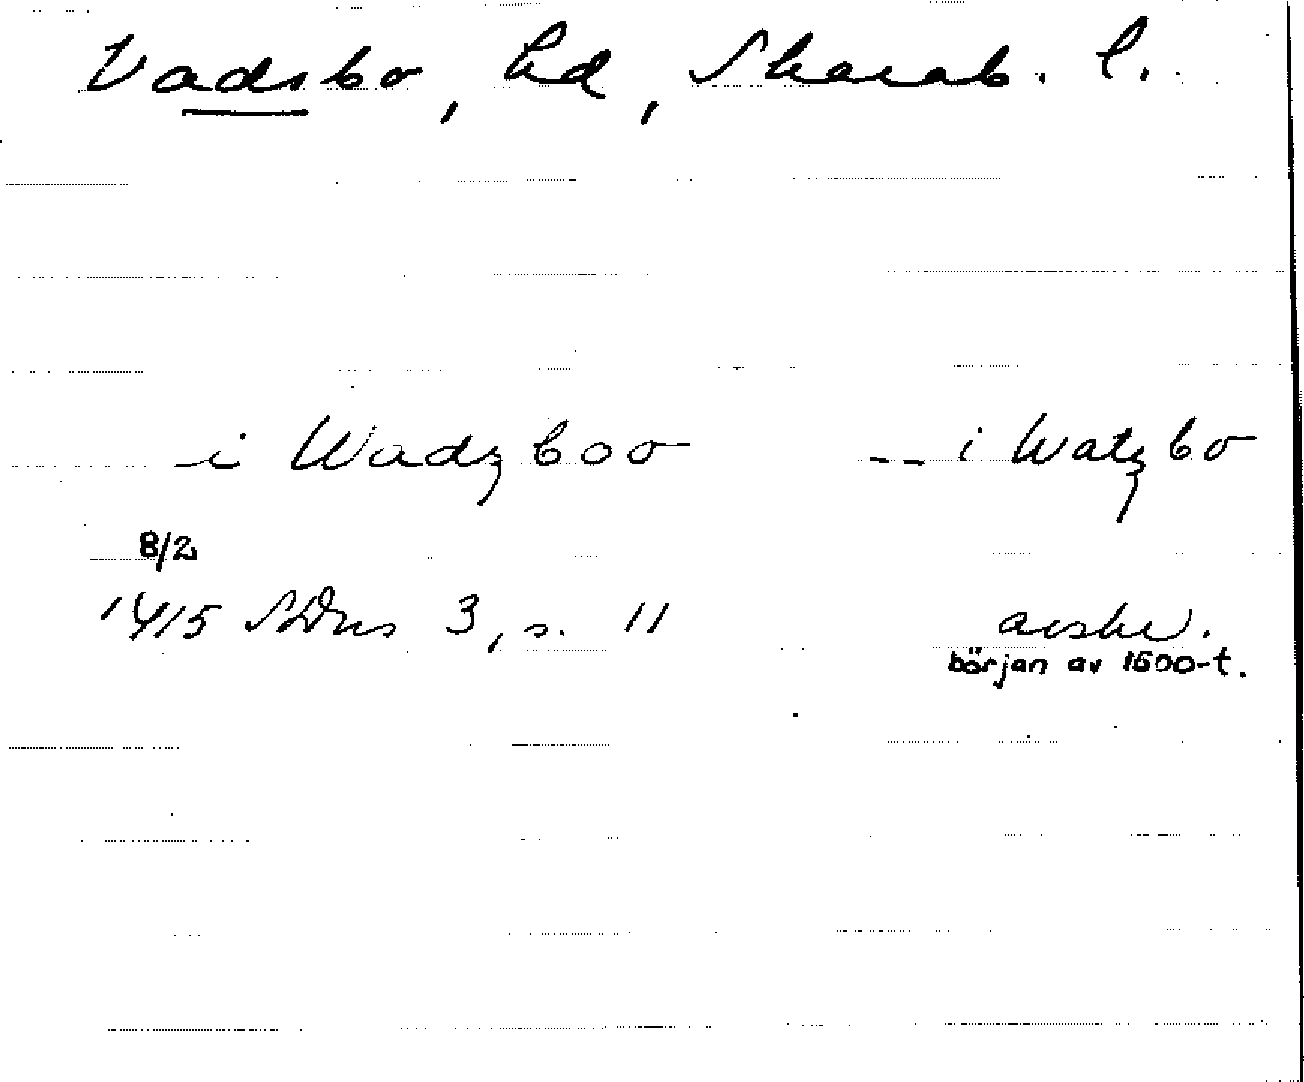 Vadsbo, hd, Skarab. l.
i Wadzboo -- i Watzbo
8/2
1415 SDns 3, s. 11 avskr.
början av 1500-t.